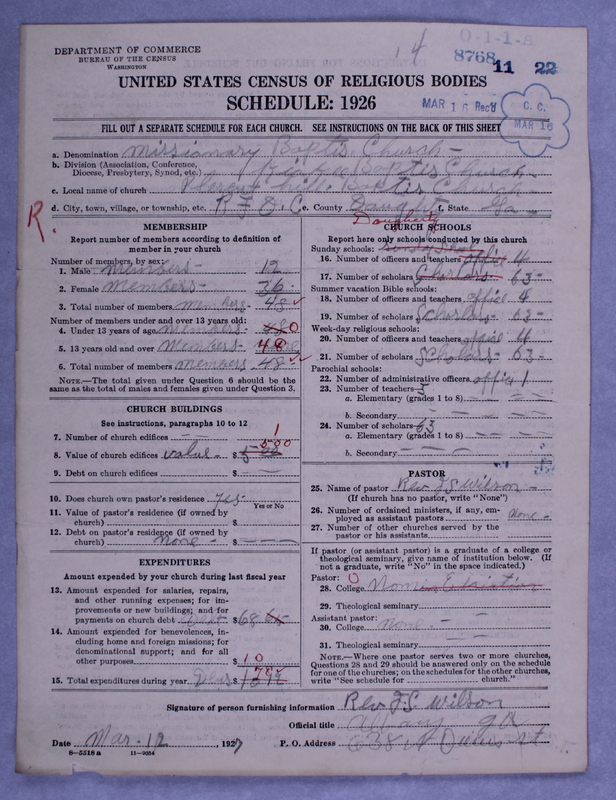 14
O-1-1-A
8768
11 22
DEPARTMENT OF COMMERCE
BUREAU OF THE CENSUS
WASHINGTON
UNITED STATES CENSUS OF RELIGIOUS BODIES
SCHEDULE: 1926
MAR 16 Rec'd
C. C.
MAR 16
FILL OUT A SEPARATE SCHEDULE FOR EACH CHURCH. SEE INSTRUCTIONS ON THE BACK OF THIS SHEET
a. Denomination Missionary Baptis Church
b. Division (Association, Conference, Diocese, Presbytery, Synod, etc.) Baptis Church
c. Local name of church Hill Baptis Church
d. City, town, village, or township, etc. R F D e. County Daugherty f. State Ga
R.
MEMBERSHIP
Report number of members according to definition of member in your church
Number of members, by sex:
1. Male Members 12
2. Female Members 36
3. Total number of members members 48
Number of members under and over 13 years old:
4. Under 13 years of age members 0
5. 13 years old and over Members 48
6. Total number of members members 48
NOTE.—The total given under Question 6 should be the same as the total of males and females given under Question 3.
CHURCH BUILDINGS
See instructions, paragraphs 10 to 12
7. Number of church edifices 1
8. Value of church edifices value $ 500
9. Debt on church edifices $
10. Does church own pastor's residence yes
Yes or No
11. Value of pastor's residence (if owned by church) $
12. Debt on pastor's residence (if owned by church) None $
EXPENDITURES
Amount expended by your church during last fiscal year
13. Amount expended for salaries, repairs, and other running expenses; for improvements or new buildings; and for payments on church debt $ 68
14. Amount expended for benevolences, including home and foreign missions; for denominational support; and for all other purposes $ 10
15. Total expenditures during year $ 78
CHURCH SCHOOLS
Report here only schools conducted by this church
Sunday schools:
16. Number of officers and teachers office 4
17. Number of scholars Scholars 63
Summer vacation Bible schools:
18. Number of officers and teachers office 4
19. Number of scholars Scholars 63
Week-day religious schools:
20. Number of officers and teachers office 4
21. Number of scholars Scholars 63
Parochial schools:
22. Number of administrative officers office 1
23. Number of teachers
a. Elementary (grades 1 to 8)
b. Secondary
24. Number of scholars 63
a. Elementary (grades 1 to 8)
b. Secondary
PASTOR
25. Name of pastor Rev J S Wilson
(If church has no pastor, write "None")
26. Number of ordained ministers, if any, employed as assistant pastors None
27. Number of other churches served by the pastor or his assistants
If pastor (or assistant pastor) is a graduate of a college or theological seminary, give name of institution below. (If not a graduate, write "No" in the space indicated.)
Pastor: 0
28. College
29. Theological seminary
Assistant pastor:
30. College None
31. Theological seminary
NOTE.—Where one pastor serves two or more churches, Questions 28 and 29 should be answered only on the schedule for one of the churches; on the schedules for the other churches, write "See schedule for church."
Signature of person furnishing information Rev J S Wilson
Official title Albany Ga
Date Mar. 12, 1927 P. O. Address 638
8—5518 a 11—9354